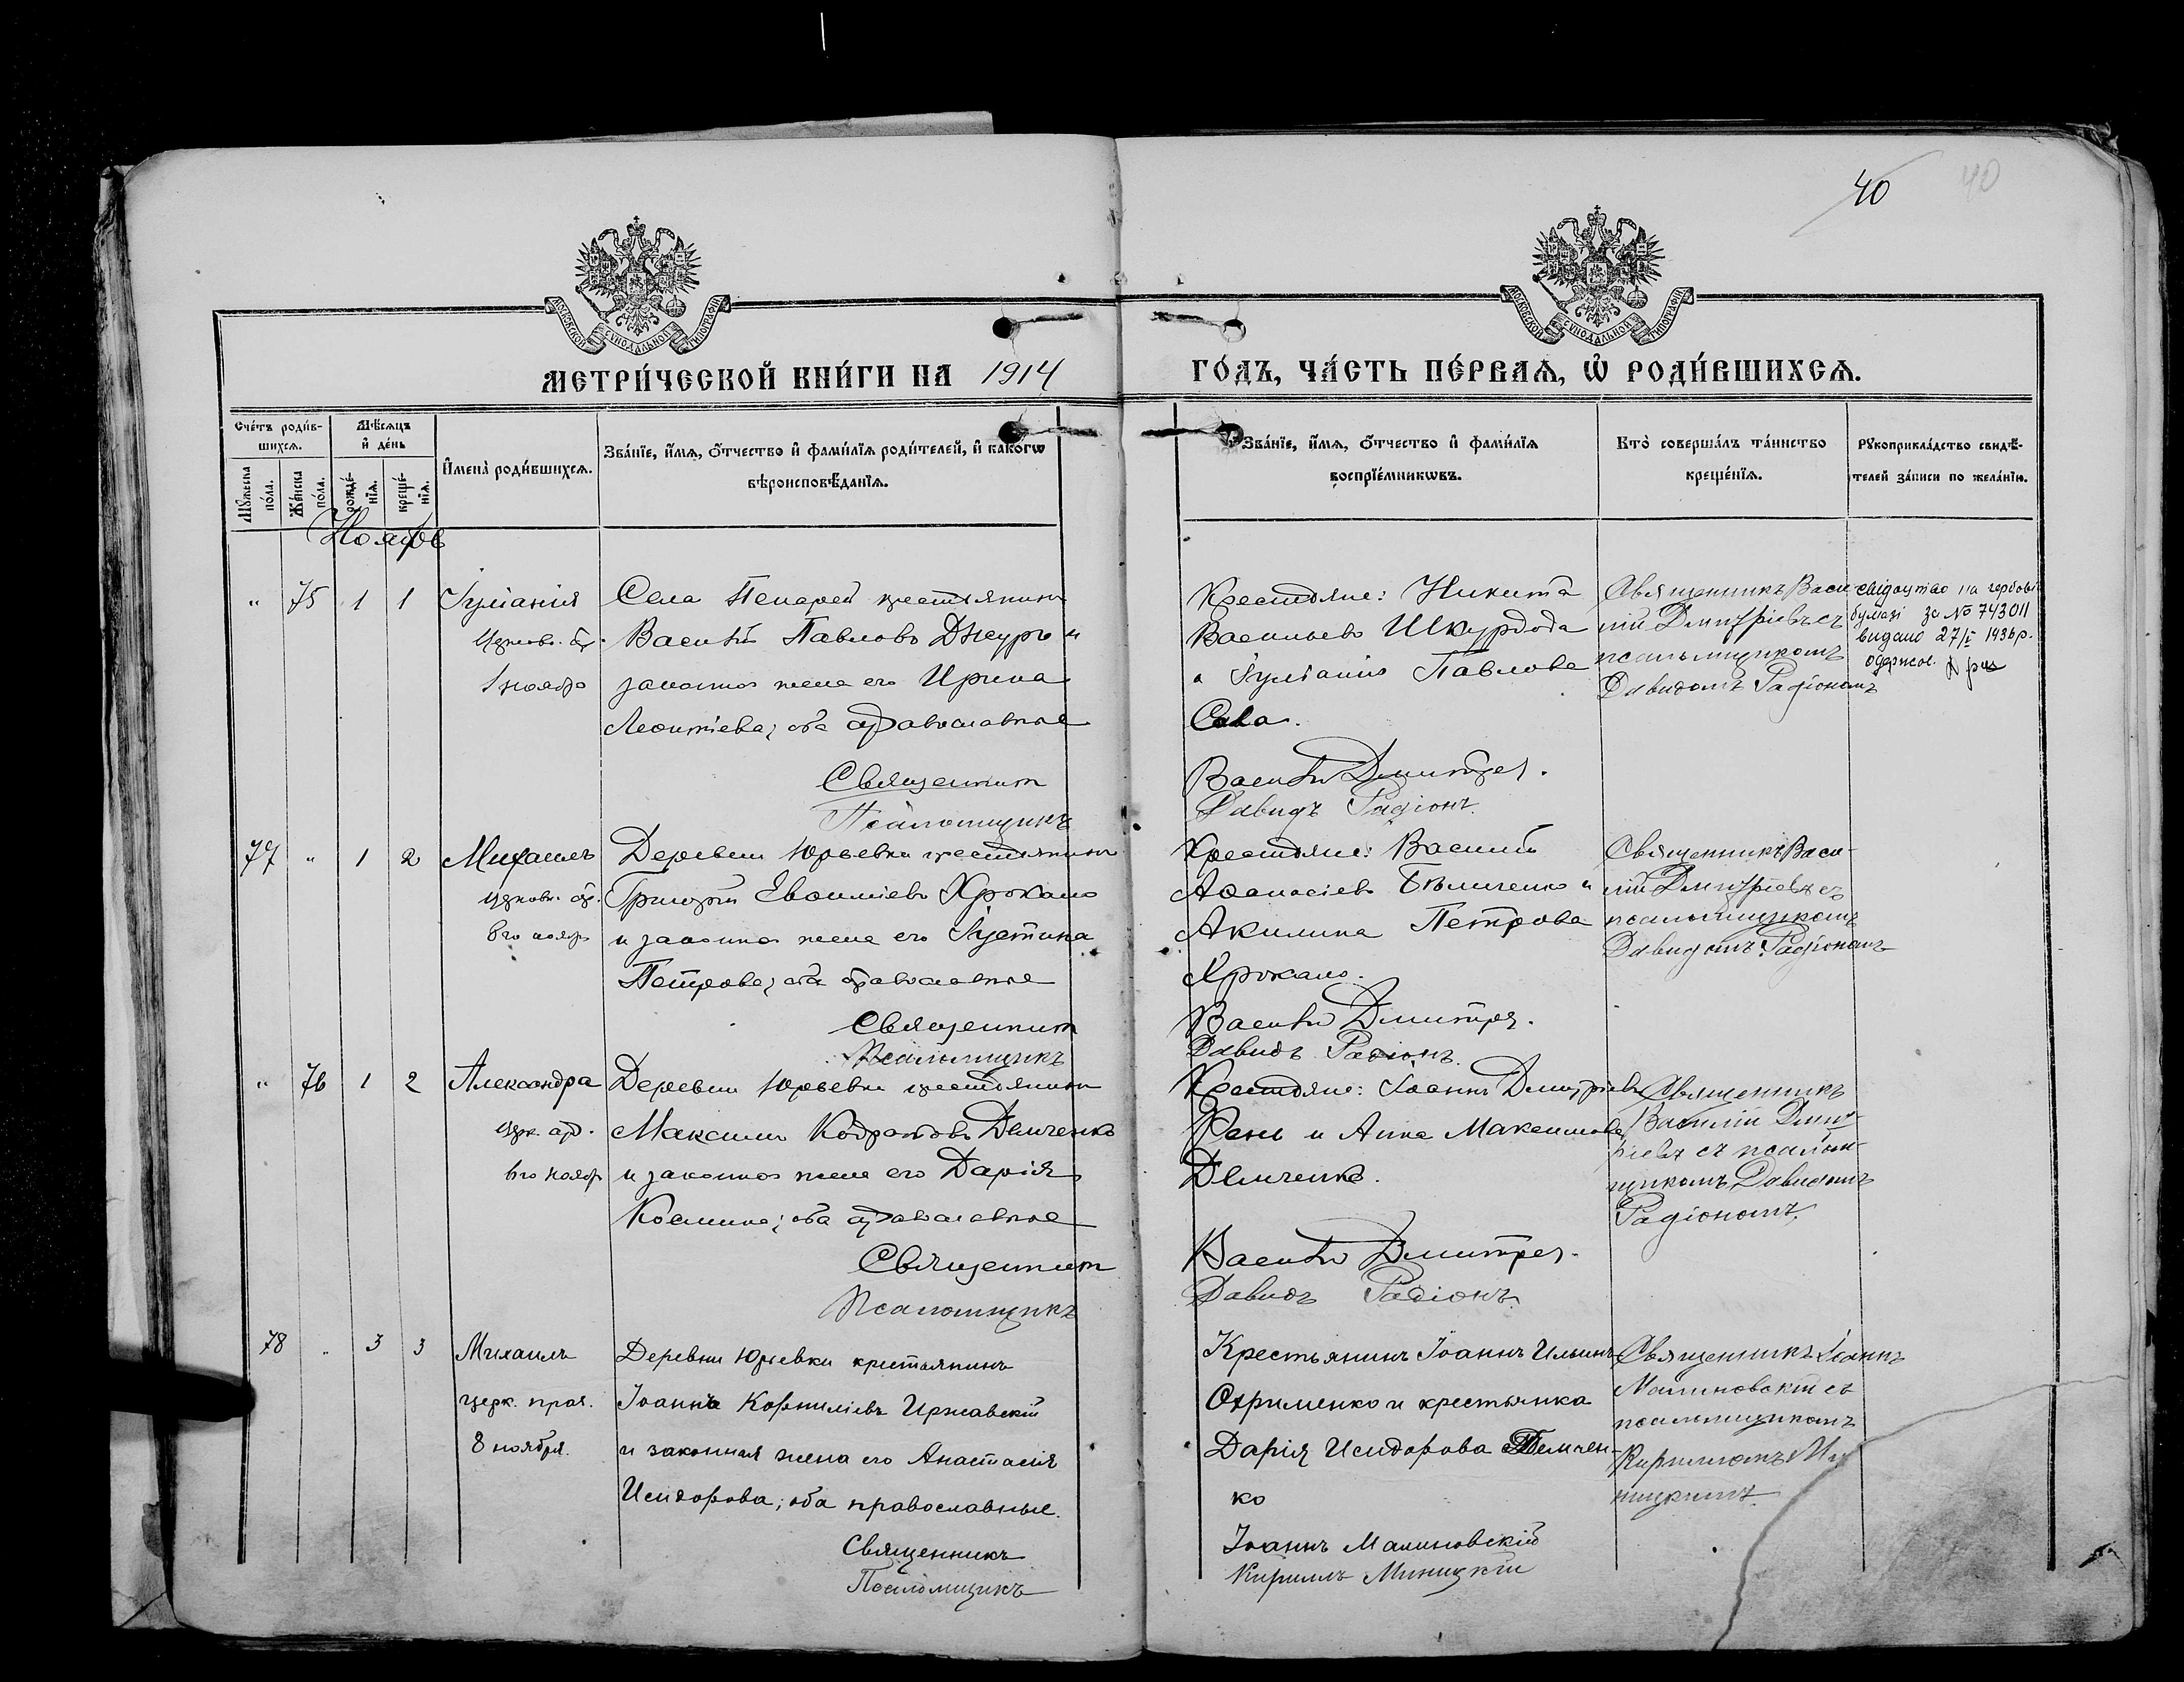 40
40
МОСКОВСКОЙ СѴНОДАЛЬНОЙ ТИПОГРАФІИ
МОСКОВСКОЙ СѴНОДАЛЬНОЙ ТИПОГРАФІИ
МЕТРИ́ЧЕСКОЙ КНИ́ГИ НА 1914 ГО́ДЪ, ЧА́СТЬ ПЕ́РВАѦ, Ѡ҆ РОДИ́ВШИХСѦ.
Сче́тъ роди́в-
шихсѧ.
Мꙋ́жеска
по́ла.
Же́нска
по́ла.
Мѣ́сѧцъ
и҆ де́нь
рожде́-
нїѧ.
креще́-
нїѧ.
И҆мена̀ роди́вшихсѧ.
Зва́нїе, и҆́мѧ, ѻ҆́тчество и҆ фами́лїѧ роди́телей, и҆ како́гѡ
вѣроисповѣ́данїѧ.
Зва́нїе, и҆́мѧ, ѻ҆́тчество и҆ фами́лїѧ
воспрїе́мникѡвъ.
Кто̀ соверша́лъ та́инство
креще́нїѧ.
Рꙋкоприкла́дство свидѣ́-
телей за́писи по жела́нїю.
Ноябрь
" 75 1 1
Іуліанія
церковн. пр.
1 ноября
Села крестьянинъ
Василій Павловъ Джуръ и
законная жена его Ирина
Леонтіева; оба православные
Священникъ
Псаломщикъ
Крестьяне: Никита
Васильевъ Шкурдода
и Іуліанія Павлова
Сава.
Василій Дмитрев.
Давидъ Радіонъ.
Священникъ Васи-
лій Дмитріевъ съ
псаломщикомъ
Давидомъ Радіономъ
свідоцтво на гербові
бумазі за № 743011
видано 27/I 1936 р.
одержов.
77 " 1 2
Михаилъ
церковн. пр.
8го ноябр
Деревни Юрьевки крестьянинъ
Григорій Евфиміевъ Хрокало
и законная жена его Іустина
Петрова; оба православные
Священникъ
Псаломщикъ
Крестьяне: Василій
Аѳанасіевъ Бѣличенко и
Акилина Петрова
Хрокало.
Василій Дмитрев.
Давидъ Радіонъ.
Священникъ Васи-
лій Дмитріевъ съ
псаломщикомъ
Давидомъ Радіономъ
" 76 1 2
Александра
церк. пр.
6го ноябр
Деревни Юрьевки крестьянинъ
Максимъ Кодратовъ Демченко
и законная жена его Дарія
Космина; оба православные
Священникъ
Псаломщикъ
Крестьяне: Іоаннъ Дмитріевъ
Рень и Анна Максимова
Демченко.
Василій Дмитрев.
Давидъ Радіонъ.
Священникъ
Василій Дмит-
ріевъ съ псалом-
щикомъ Давидомъ
Радіономъ.
78 " 3 3
Михаилъ
церк. прав.
8 ноября.
Деревни Юрьевки крестьянинъ
Іоаннъ Корниліевъ Иржавскій
и законная жена его Анастасія
Исидорова; оба православные.
Священникъ
Псаломщикъ
Крестьянинъ Іоаннъ Ильинъ
Охрименко и крестьянка
Дарія Исидорова Темчен-
ко
Іоаннъ Малиновскій
Кириллъ Миницкій
Священникъ Іоаннъ
Малиновскій съ
псаломщикомъ
Кирилломъ Ми-
ницкимъ.